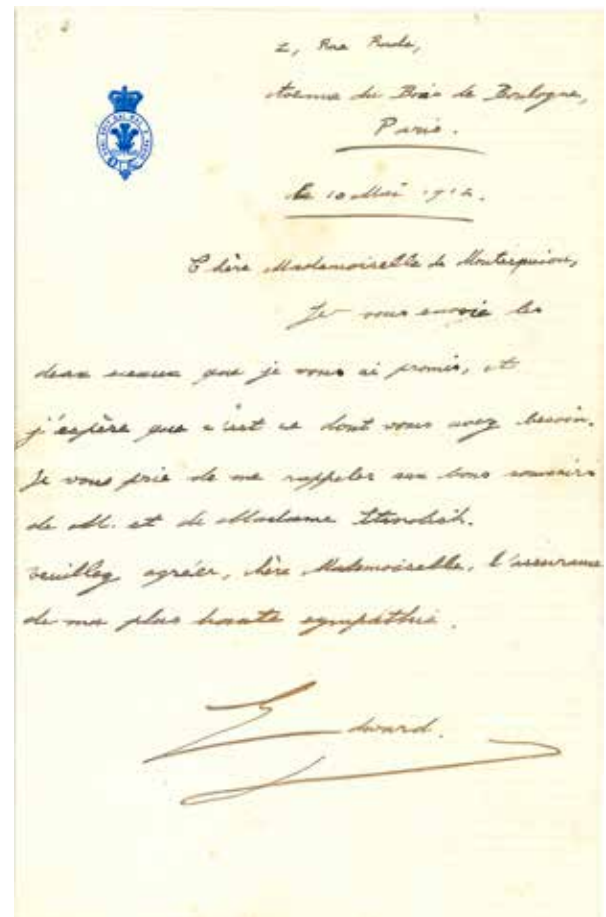 2, Rue Rude,
Avenue du Bois de Boulogne,
Paris.
le 10 Mai 1912.
Chère Mademoiselle de Montesquiou,
Je vous envoie les
deux sceaux que je vous ai promis, et
j'espère que c'est ce dont vous avez besoin.
Je vous prie de me rappeler aux bons souvenirs
de M. et de Madame Standish.
Veuillez agréer, chère Mademoiselle, l'assurance
de ma plus haute sympathie.
Edward.